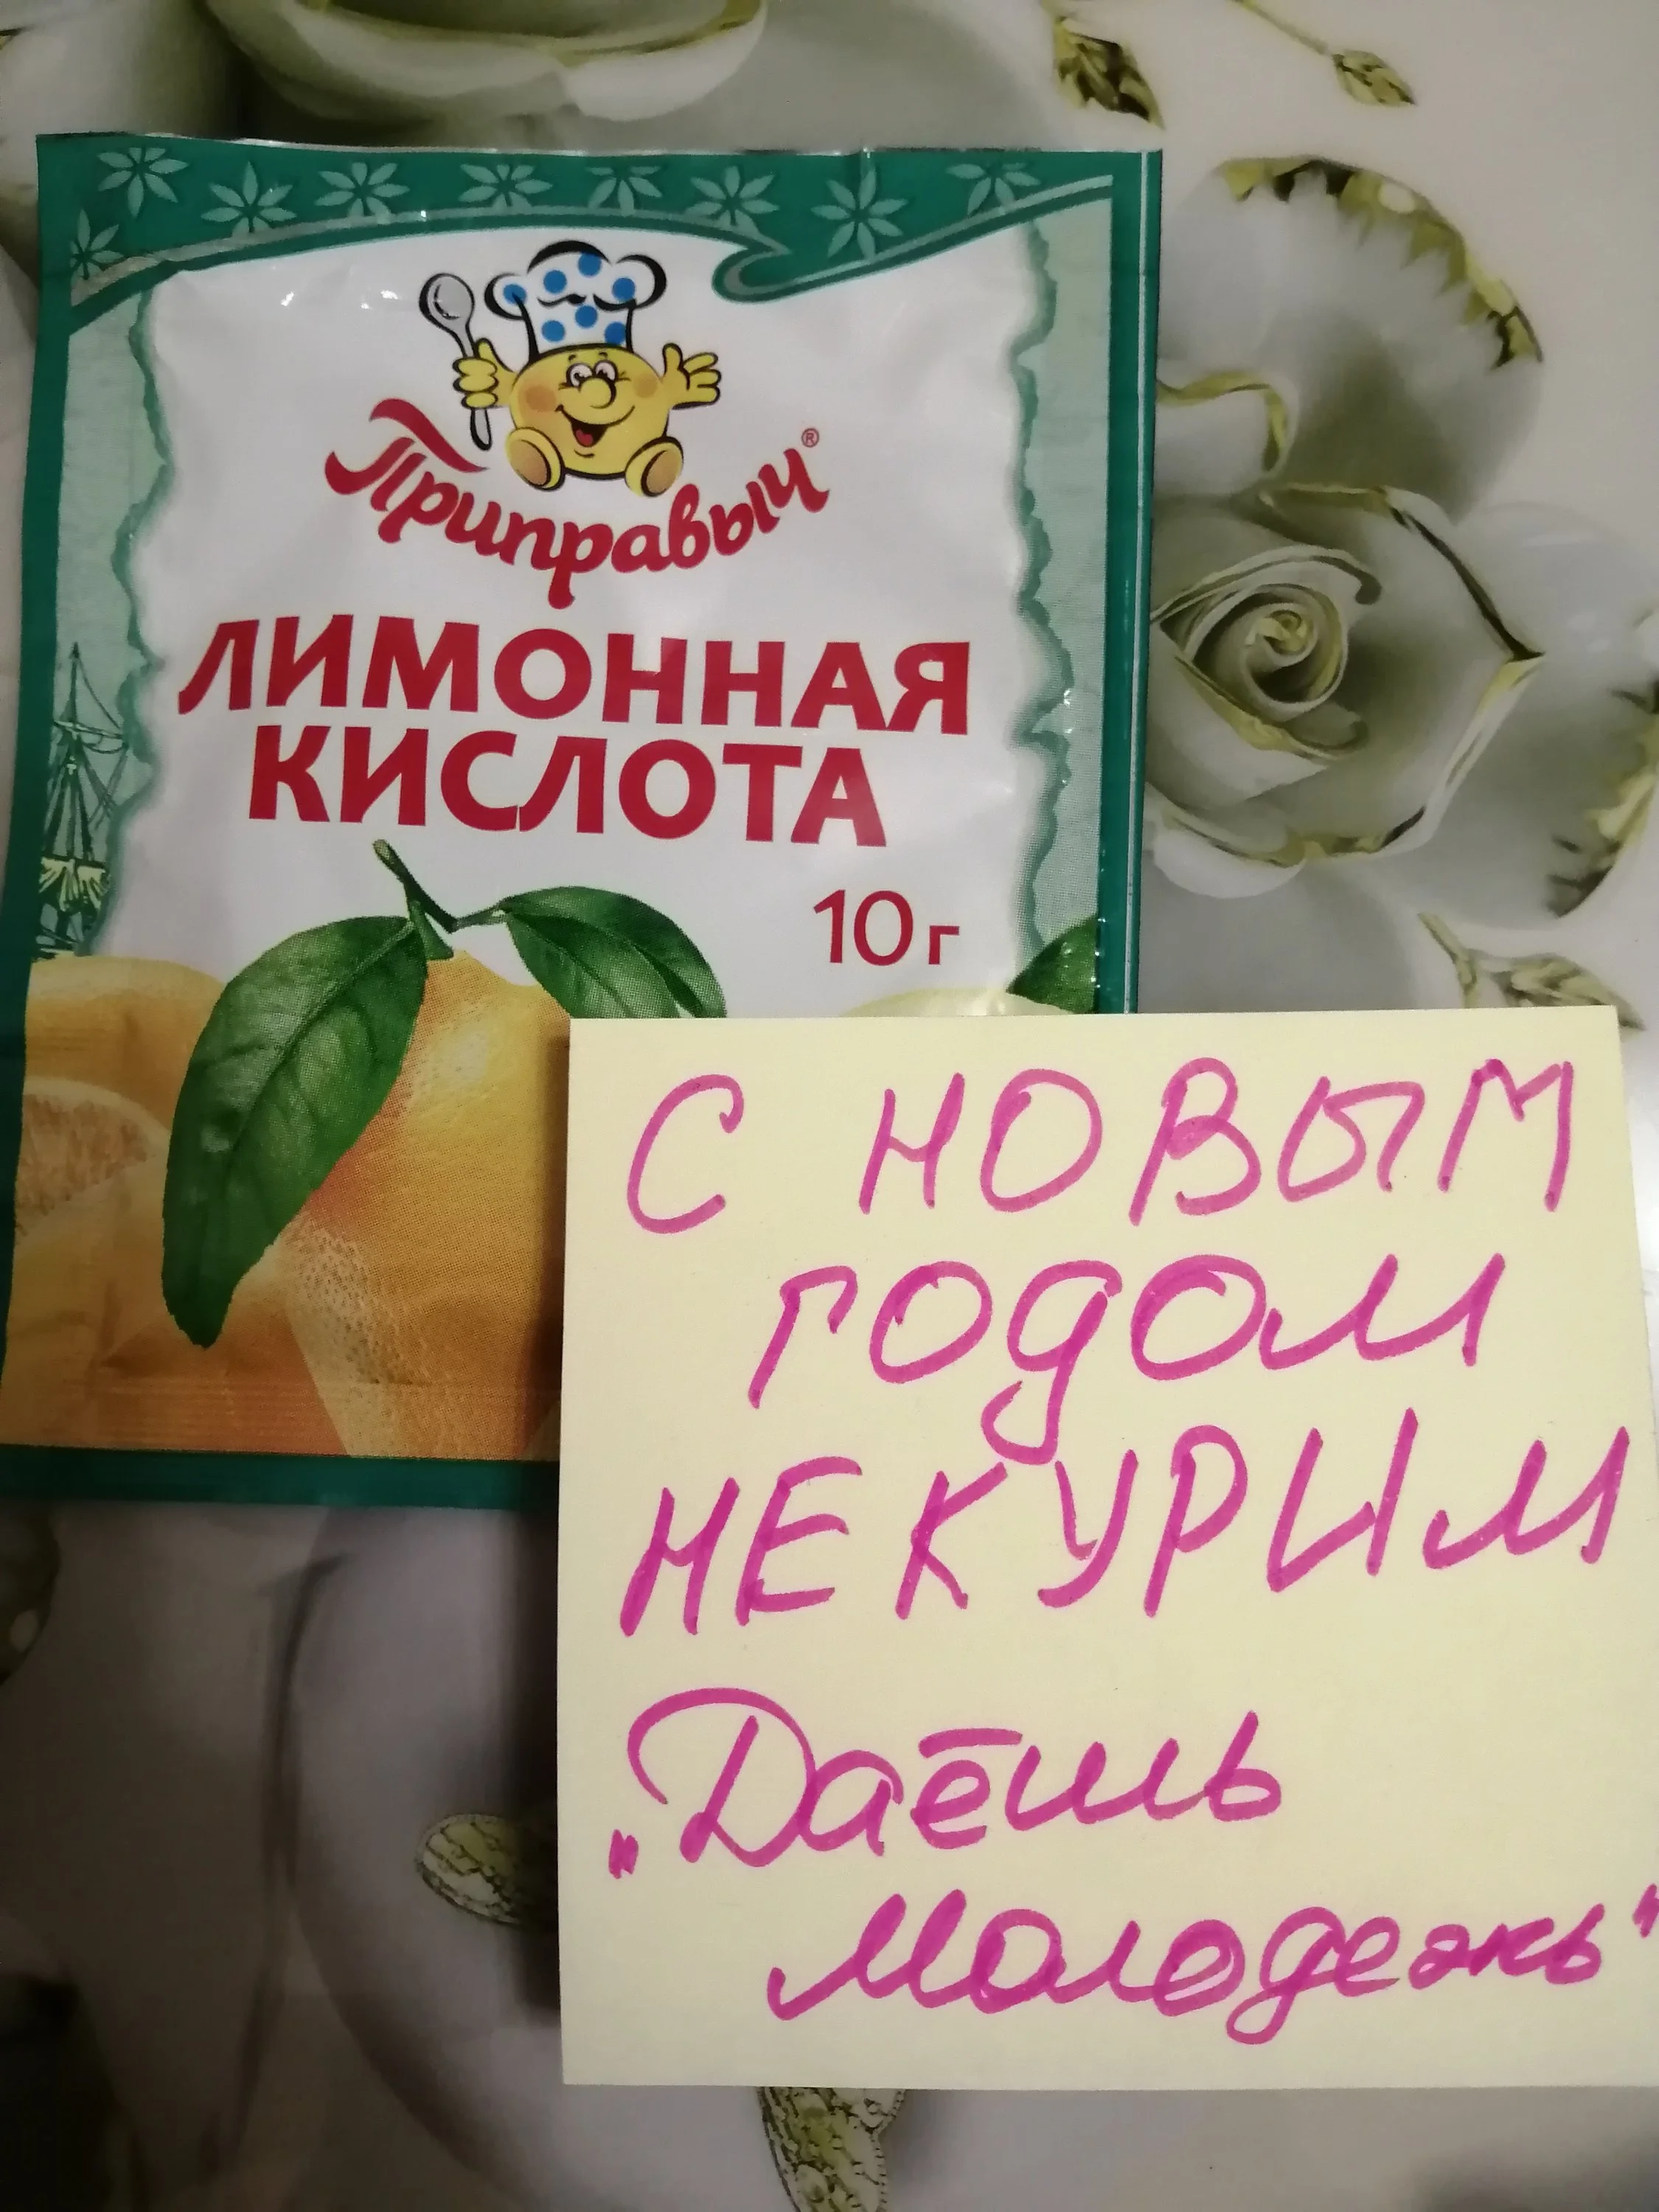 Приправыч®
ЛИМОННАЯ
КИСЛОТА
10 г
С НОВЫМ
ГОДОМ
НЕКУРИМ
„Даёшь
Молодежь"